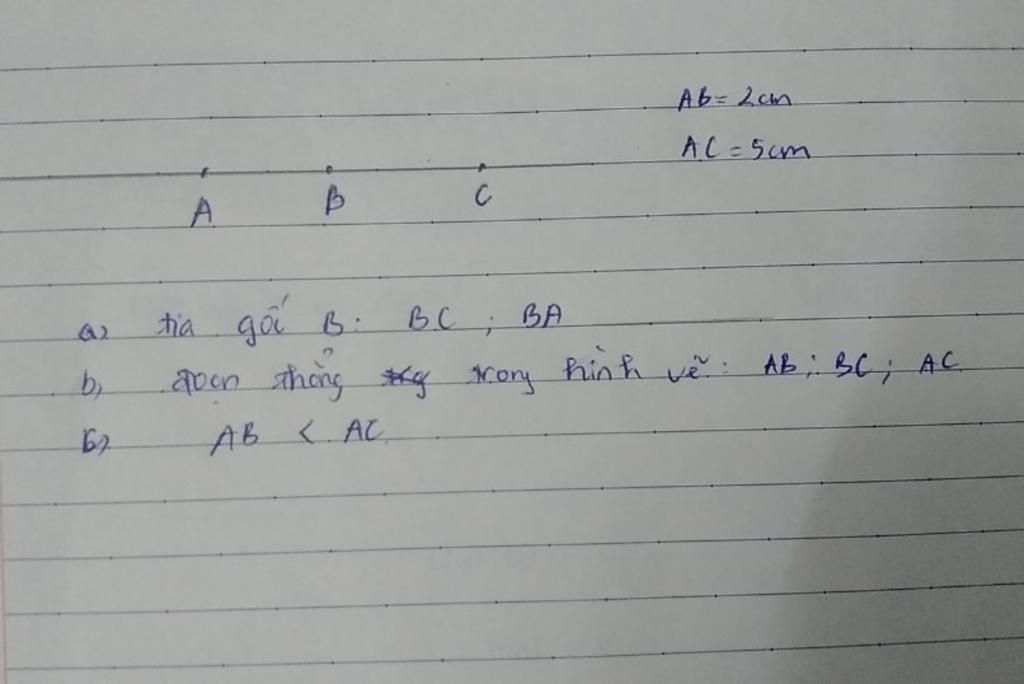 AB = 2cm
AC = 5cm
A B C
a, tia gốc B: BC ; BA
b, đoạn thẳng trong hình vẽ: AB; BC; AC
AB < AC